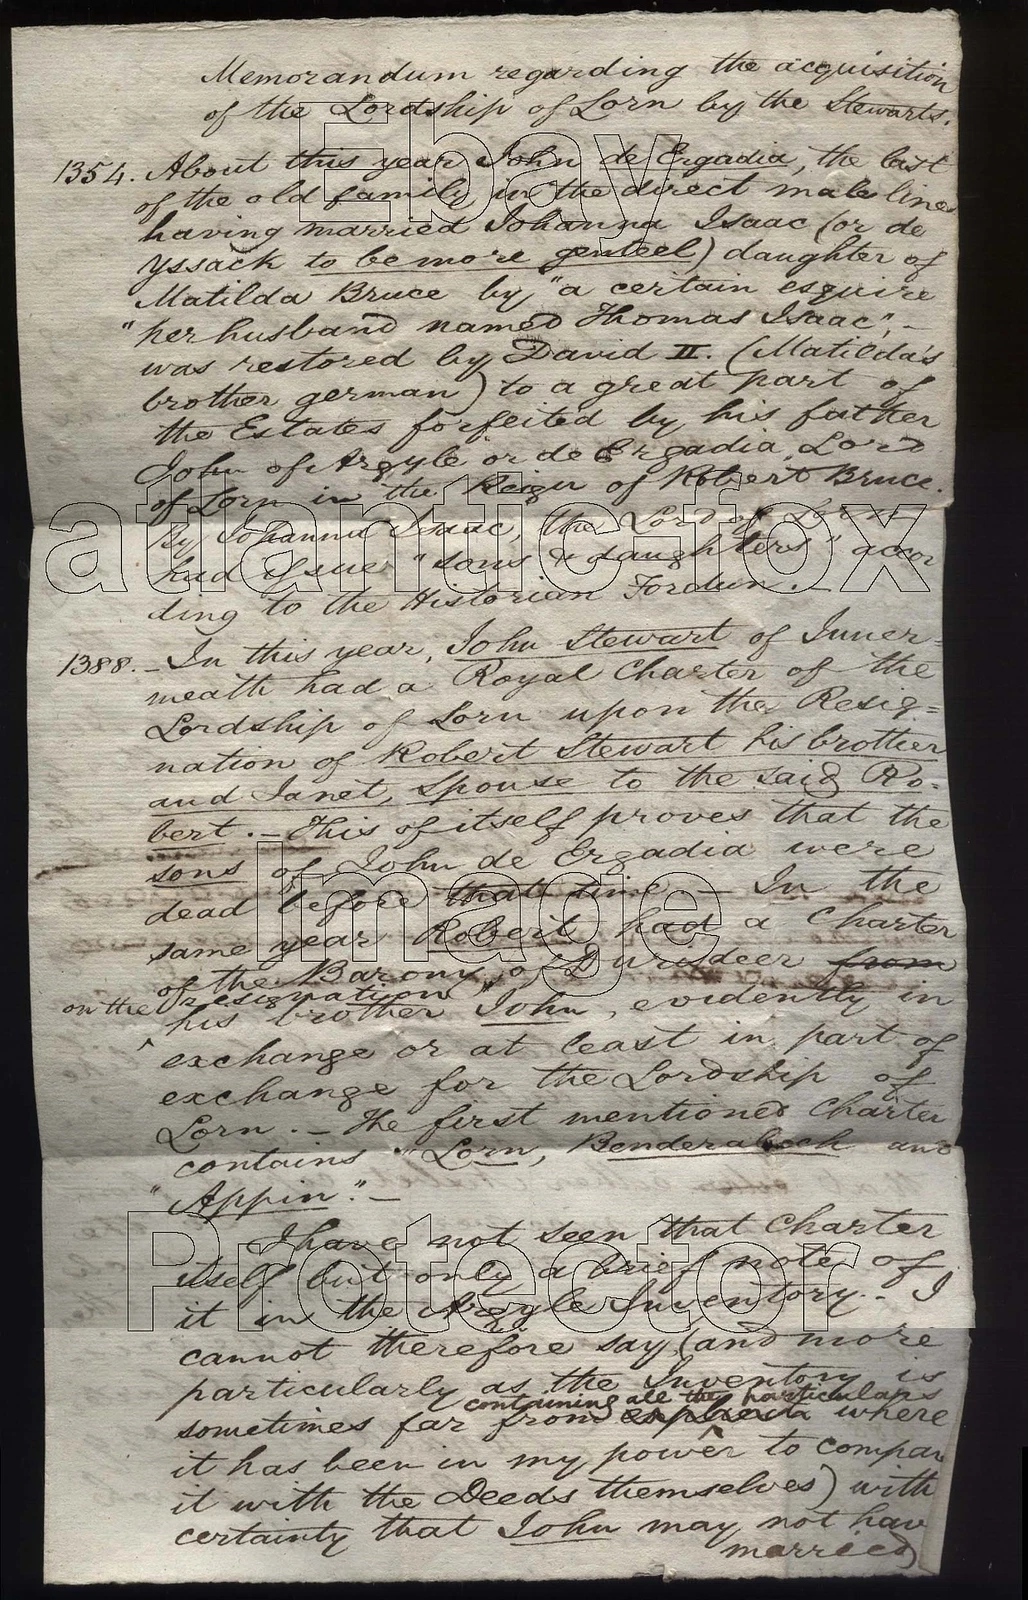 Memorandum regarding the acquisition
of the Lordship of Lorn by the Stewarts.
1354. About this year John de Ergadia, the last
of the old family in the direct male line
having married Johanna Isaac (or de
Yssack to be more genteel) daughter of
Matilda Bruce by "a certain esquire
"her husband named Thomas Isaac", –
was restored by David II. (Matilda's
brother german) to a great part of
the Estates forfeited by his father
John of Argyle or de Ergadia, Lord
of Lorn in the Reign of Robert Bruce.
By Johanna Isaac, the Lord of Lorn
had issue "sons & daughters" accor
ding to the Historian Fordun. –
1388. – In this year, John Stewart of Inner-
meath had a Royal Charter of the
Lordship of Lorn upon the Resig=
nation of Robert Stewart his brother
and Janet, spouse to the said Ro-
bert. – This of itself proves that the
sons of John de Ergadia were
dead before that time – In the
same year Robert had a Charter
of the Barony of Durisdeer from
on the resignation
his brother John, evidently in
exchange or at least in part of
exchange for the Lordship of
Lorn. – The first mentioned Charter
contains "Lorn, Benderaloch and
"Appin". –
I have not seen that Charter
itself but only a brief note of
it in the Argyle Inventory – I
cannot therefore say (and more
particularly as the Inventory is
containing all the particulars
sometimes far from where
it has been in my power to compar
it with the Deeds themselves) with
certainty that John may not hav
married
Ebay
atlantic-fox
Image
Protector